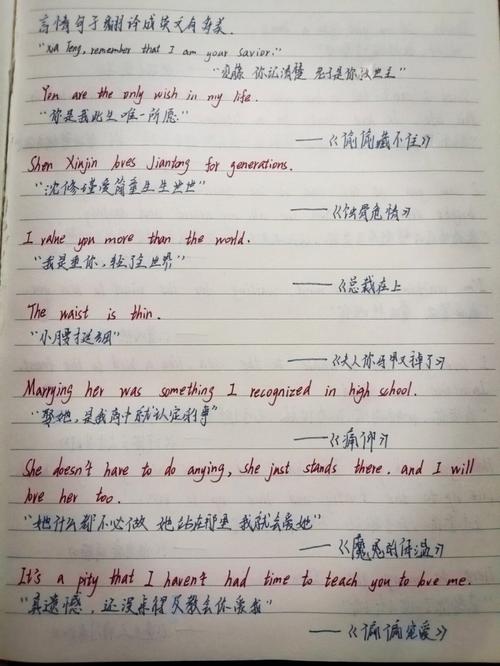 言情句子翻译成英文有多美.
"Xia Teng, remember that I am your savior."
"夏藤 你记清楚 老子是你救世主"
You are the only wish in my life.
"你是我此生唯一所愿"
——《偷偷藏不住》
Shen Xiujin loves Jiantong for generations.
"沈修瑾爱简童生生世世"
——《蚀骨危情》
I value you more than the world.
"我是重你,轻了全世界"
——《总裁在上
The waist is thin.
"小腰挺细"
——《夫人你马甲又掉了》
Marrying her was something I recognized in high school.
"娶她,是我高中就认定的事"
——《痛仰》
She doesn't have to do anying, she just stands there. and I will
love her too.
"她什么都不必做 她站在那里 我就会爱她"
——《魔鬼的体温》
It's a pity that I haven't had time to teach you to love me.
"真遗憾,还没来得及教会你爱我"
——《偏偏宠爱》